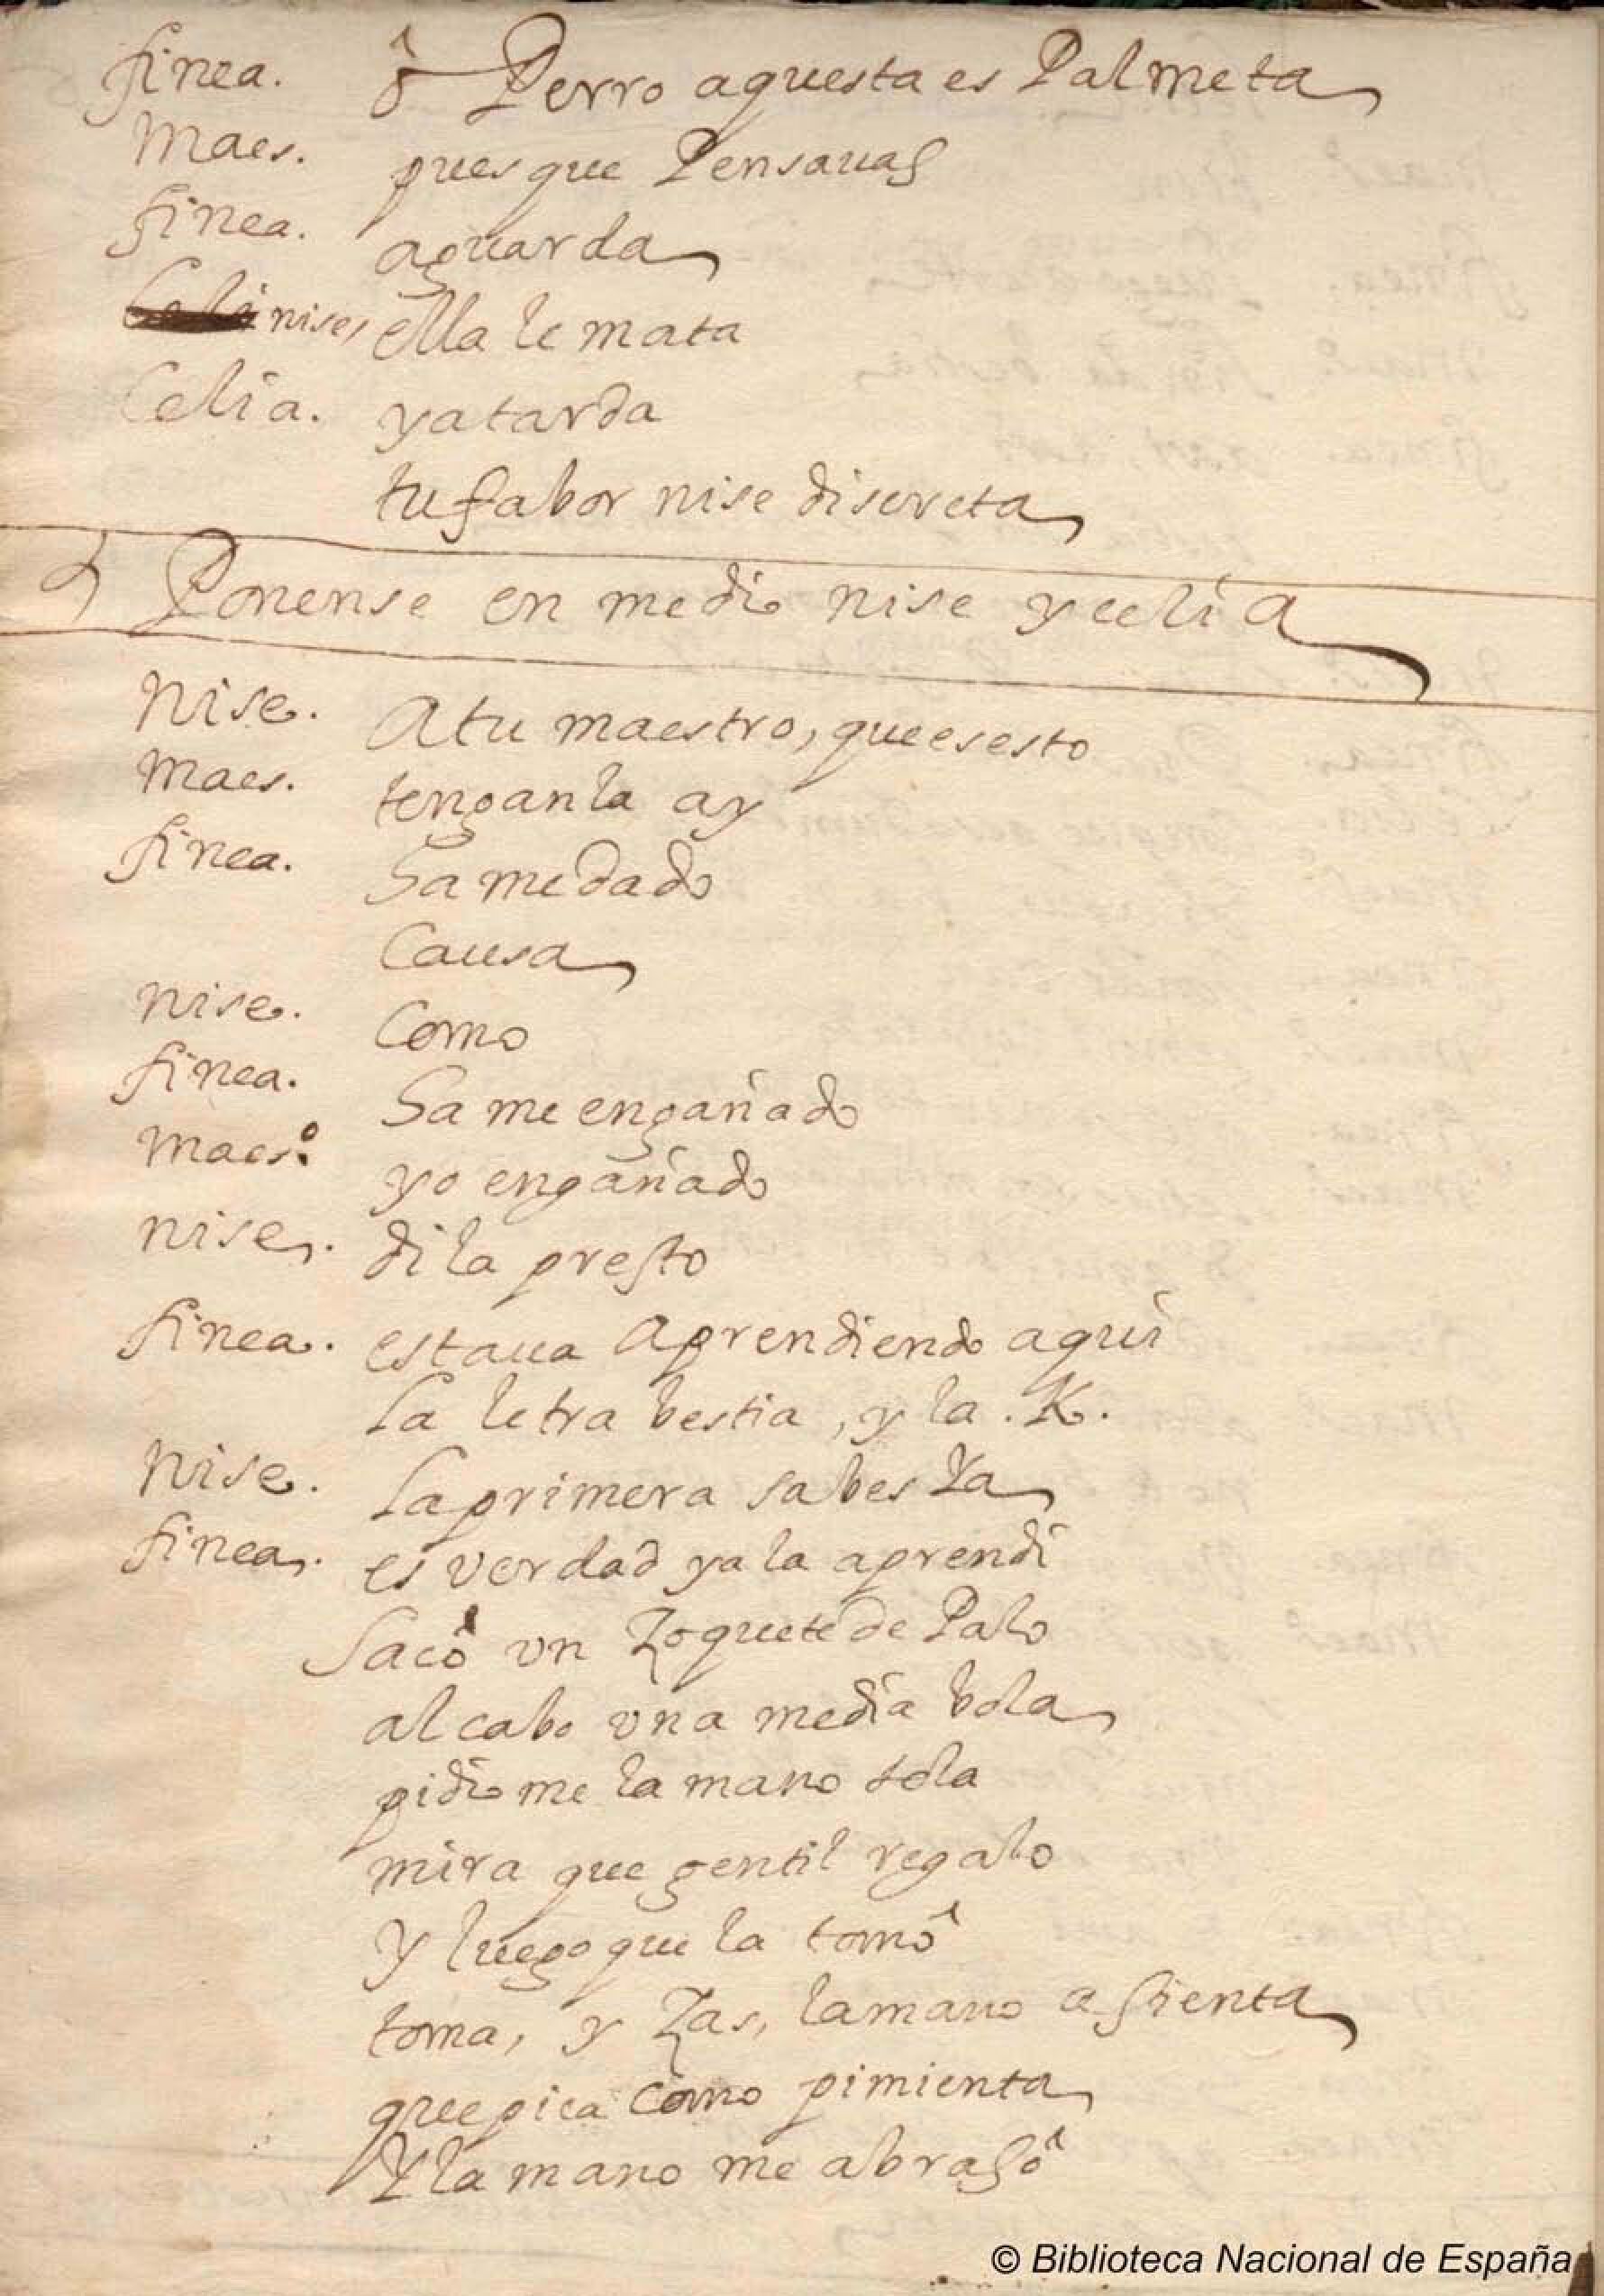 finea. ô Perro aquesta es Palmeta
Maes. pues que Pensauas
finea. aguarda
nise, ella le mata
Celia. ya tarda
tu fabor nise discreta
Ponense en medio nise y celia
Nise. A tu maestro, que es esto
Maes. tenganla ay
finea. Hame dado
Causa
Nise. Como
finea. Ha me engañado
Maes.º yo engañado
nise. dila presto
finea. estaua Aprendiendo aqui
La letra bestia, y la .K.
Nise. La primera sabes Ya
finea. es verdad ya la aprendi
Sacô vn Zoquete de Palo
al cabo vna media bola
pidiome la mano sola
mira que gentil regalo
Y luego que la tomô
toma, y Zas, la mano asienta
que pica Como pimienta
Y la mano me abrasô
© Biblioteca Nacional de España